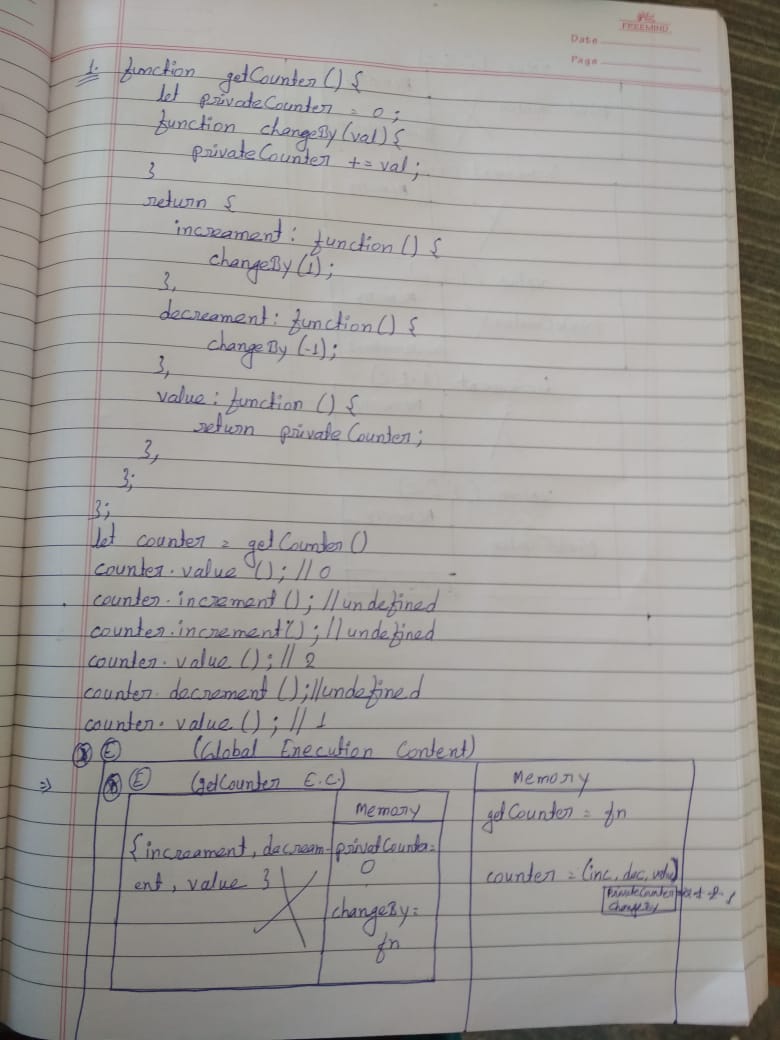 FREEMIND
Date
Page
1. function getCounter () {
let privateCounter = 0;
function changeBy (val) {
privateCounter += val;
}
return {
increament : function () {
changeBy (1);
},
decreament : function () {
changeBy (-1);
},
value : function () {
return privateCounter;
},
};
};
let counter = getCounter ()
counter.value (); // 0
counter.increment (); // undefined
counter.increment (); // undefined
counter.value (); // 2
counter.decrement (); // undefined
counter.value (); // 1
E (Global Execution Content)
⇒ E (getCounter E.C.)
Memory
{ increament, decream-
ent, value }
privatCounter =
0
changeBy =
fn
Memory
getCounter = fn
counter = {inc, dec, value}
PrivateCounter
changeBy